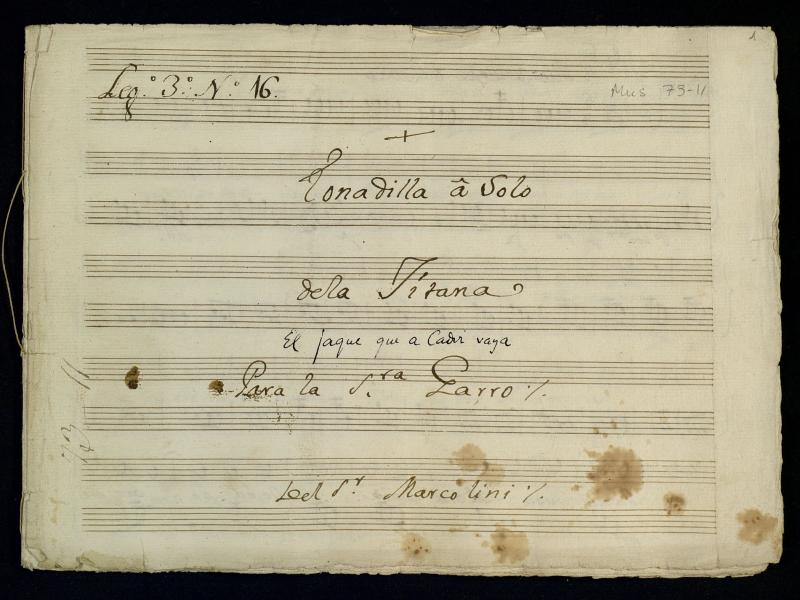 Leg.º 3º. N.º 16.
Mus 73-11
1
Tonadilla â Solo
dela Jitana
El jaque que a Cadiz vaya
Para la S.ra Garro
Del Sr. Marcolini